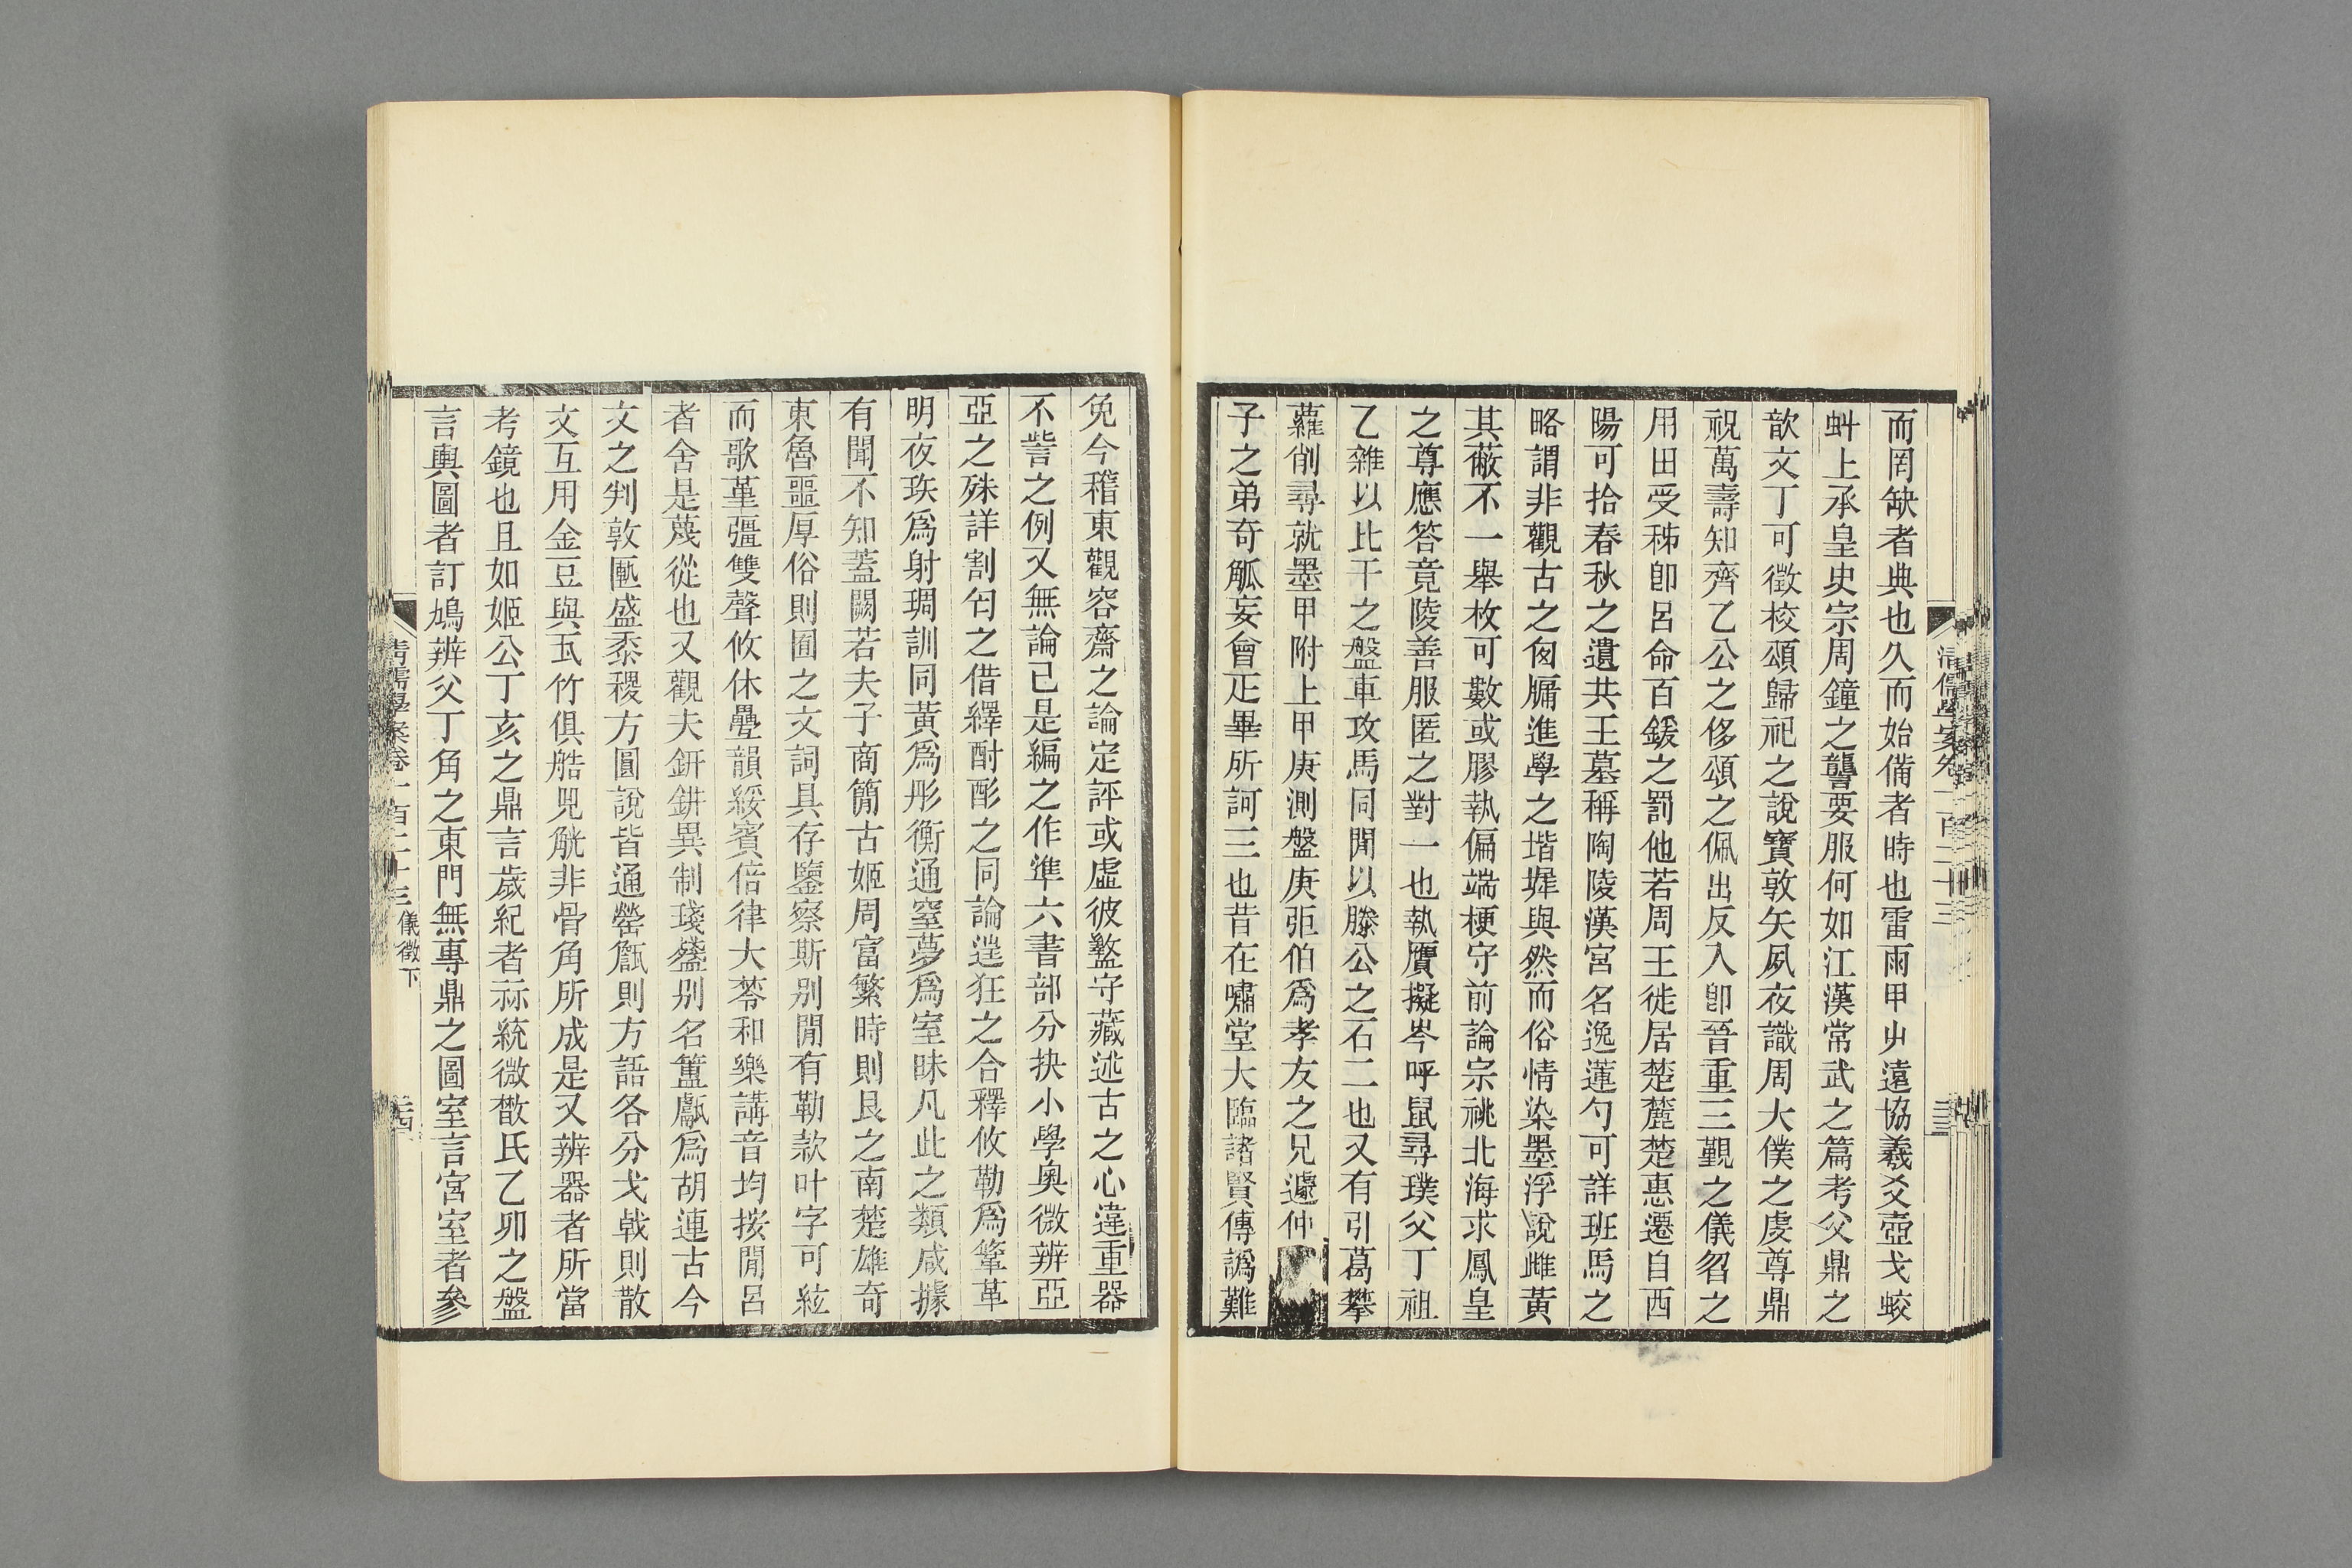 而罔缺者典也久而始備者時也雷雨甲屮遠協羲爻壺戈蛟
蚪上承皇史宗周鐘之讋要服何如江漢常武之篇考父鼎之
歆文丁可徵校頌歸祀之說寶敦矢夙夜識周大僕之虔尊鼎
祝萬壽知齊乙公之侈頌之佩出反入卽晉重三觀之儀曶之
用田受秭卽呂命百鍰之罰他若周王徙居楚麓楚惠遷自西
陽可拾春秋之遺共王墓稱陶陵漢宮名逸蓮勺可詳班馬之
略謂非觀古之囪牖進學之堦墀與然而俗情染墨浮說雌黃
其蔽不一舉枚可數或膠執偏端梗守前論宗祧北海求鳳皇
之尊應答竟陵善服匿之對一也執贋擬岑呼鼠尋璞父丁祖
乙雜以比干之盤車攻馬同閒以滕公之石二也又有引葛攀
蘿削尋就墨甲附上甲庚測盤庚弡伯爲孝友之兄遽仲
子之弟奇觚妄會疋畢所訶三也昔在嘯堂大臨諸賢傳譌難
免今稽東觀容齋之論定評或虛彼盭守藏述古之心違重器
不訾之例又無論已是編之作準六書部分抉小學奧微辨亞
亞之殊詳割匄之借繹酎酏之同論逞狂之合釋攸勒爲鞶革
明夜珱爲射琱訓同黃爲彤衡通窒夢爲室昧凡此之類咸據
有聞不知蓋闕若夫子商簡古姬周富繁時則艮之南楚雄奇
東魯噩厚俗則囿之文詞具存鑒察斯别閒有勒款叶字可絃
而歌堇彊雙聲攸休曡韻綏賓倍律大蒡和樂講音均按閒呂
者舍是蔑從也又觀夫鈃鉼異制琖盤别名簠甗爲胡連古今
文之判敦匭盛黍稷方圓說皆通罃甔則方語各分戈戟則散
文互用金豆與瓦竹俱䑪兕觥非骨角所成是又辨器者所當
考鏡也且如姬公丁亥之鼎言歲紀者祘統微散氏乙卯之盤
言輿圖者訂鳩辨父丁角之東門無專鼎之圖室言宮室者參
清儒學案卷一百二十三
清儒學案卷一百二十三 儀徵下